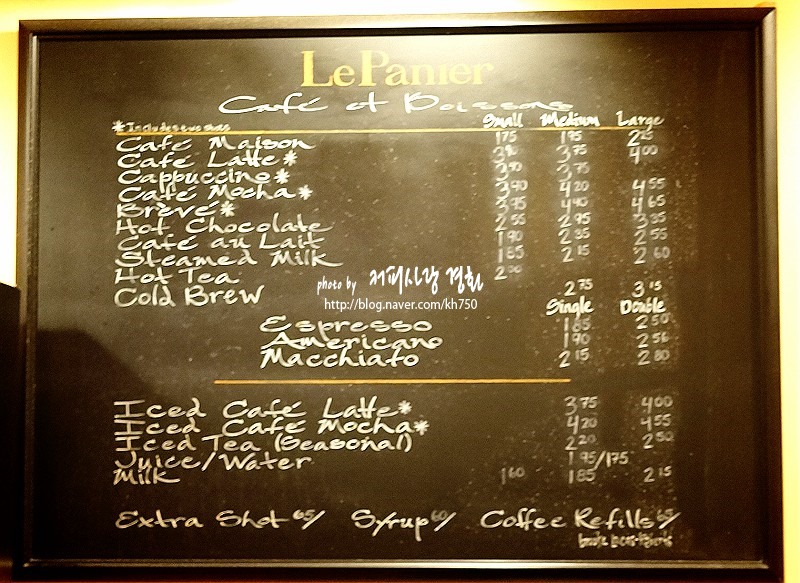 Le Panier
Café et Boissons
*Includes two shots Small Medium Large
Café Maison 1 75 1 95
Café Latte* 3 75 4 00
Cappuccino* 3 75
Café Mocha* 4 20 4 55
Brèvé* 3 95 4 40 4 65
Hot Chocolate 2 55 2 95 3 35
Café au Lait 1 90 2 35 2 55
Steamed Milk 1 85 2 15 2 60
Hot Tea
Cold Brew 2 75 3 15
photo by 커피사랑 경화
http://blog.naver.com/kh750
Single Double
Espresso 1 85 2 50
Americano 1 90 2 56
Macchiato 2 15 2 80
Iced Café Latte* 3 75 4 00
Iced Café Mocha* 4 20 4 55
Iced Tea (Seasonal) 2 20 2 50
Juice/Water 1 95/1 75
Milk 1 60 1 85 2 15
Extra Shot 65/ Syrup 60/ Coffee Refills 65/